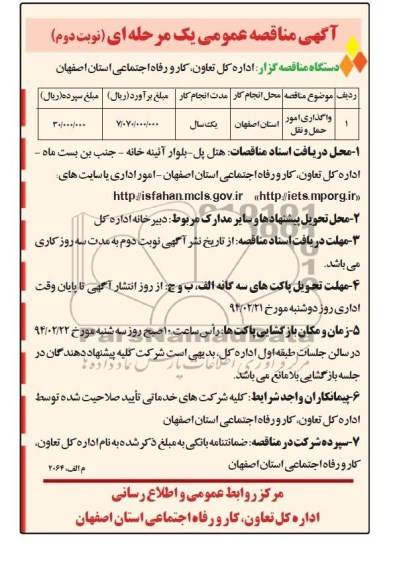 آگهی مناقصه عمومی یک مرحله ای (نوبت دوم)
دستگاه مناقصه گزار: اداره کل تعاون، کار و رفاه اجتماعی استان اصفهان
ردیف موضوع مناقصه محل انجام کار مدت انجام کار مبلغ برآورد (ریال) مبلغ سپرده (ریال)
۱ واگذاری امور حمل و نقل استان اصفهان یک سال ۷/۰۷۰/۰۰۰/۰۰۰ ۳۰/۰۰۰/۰۰۰
۱-محل دریافت اسناد مناقصات: هتل پل-بلوار آئینه خانه - جنب بن بست ماه -
اداره کل تعاون، کار و رفاه اجتماعی استان اصفهان - امور اداری یا سایت های:
http://isfahan.mcls.gov.ir «http://iets.mporg.ir»
۲-محل تحویل پیشنهادها و سایر مدارک مربوط: دبیرخانه اداره کل
۳-مهلت دریافت اسناد مناقصه: از تاریخ نشر آگهی نوبت دوم به مدت سه روز کاری
می باشد.
۴-مهلت تحویل پاکت های سه گانه الف، ب و ج: از روز انتشار آگهی تا پایان وقت
اداری روز دوشنبه مورخ ۹۴/۰۲/۲۱
۵-زمان و مکان بازگشایی پاکت ها: رأس ساعت ۱۰ صبح روز سه شنبه مورخ ۹۴/۰۲/۲۲
در سالن جلسات طبقه اول اداره کل، بدیهی است شرکت کلیه پیشنهاد دهندگان در
جلسه بازگشایی بلامانع می باشد.
۶-پیمانکاران واجد شرایط: کلیه شرکت های خدماتی تأیید صلاحیت شده توسط
اداره کل تعاون، کار و رفاه اجتماعی استان اصفهان
۷-سپرده شرکت در مناقصه: ضمانتنامه بانکی به مبلغ ذکر شده به نام اداره کل تعاون،
کار و رفاه اجتماعی استان اصفهان
م الف: ۲۰۶۴
مرکز روابط عمومی و اطلاع رسانی
اداره کل تعاون، کار و رفاه اجتماعی استان اصفهان